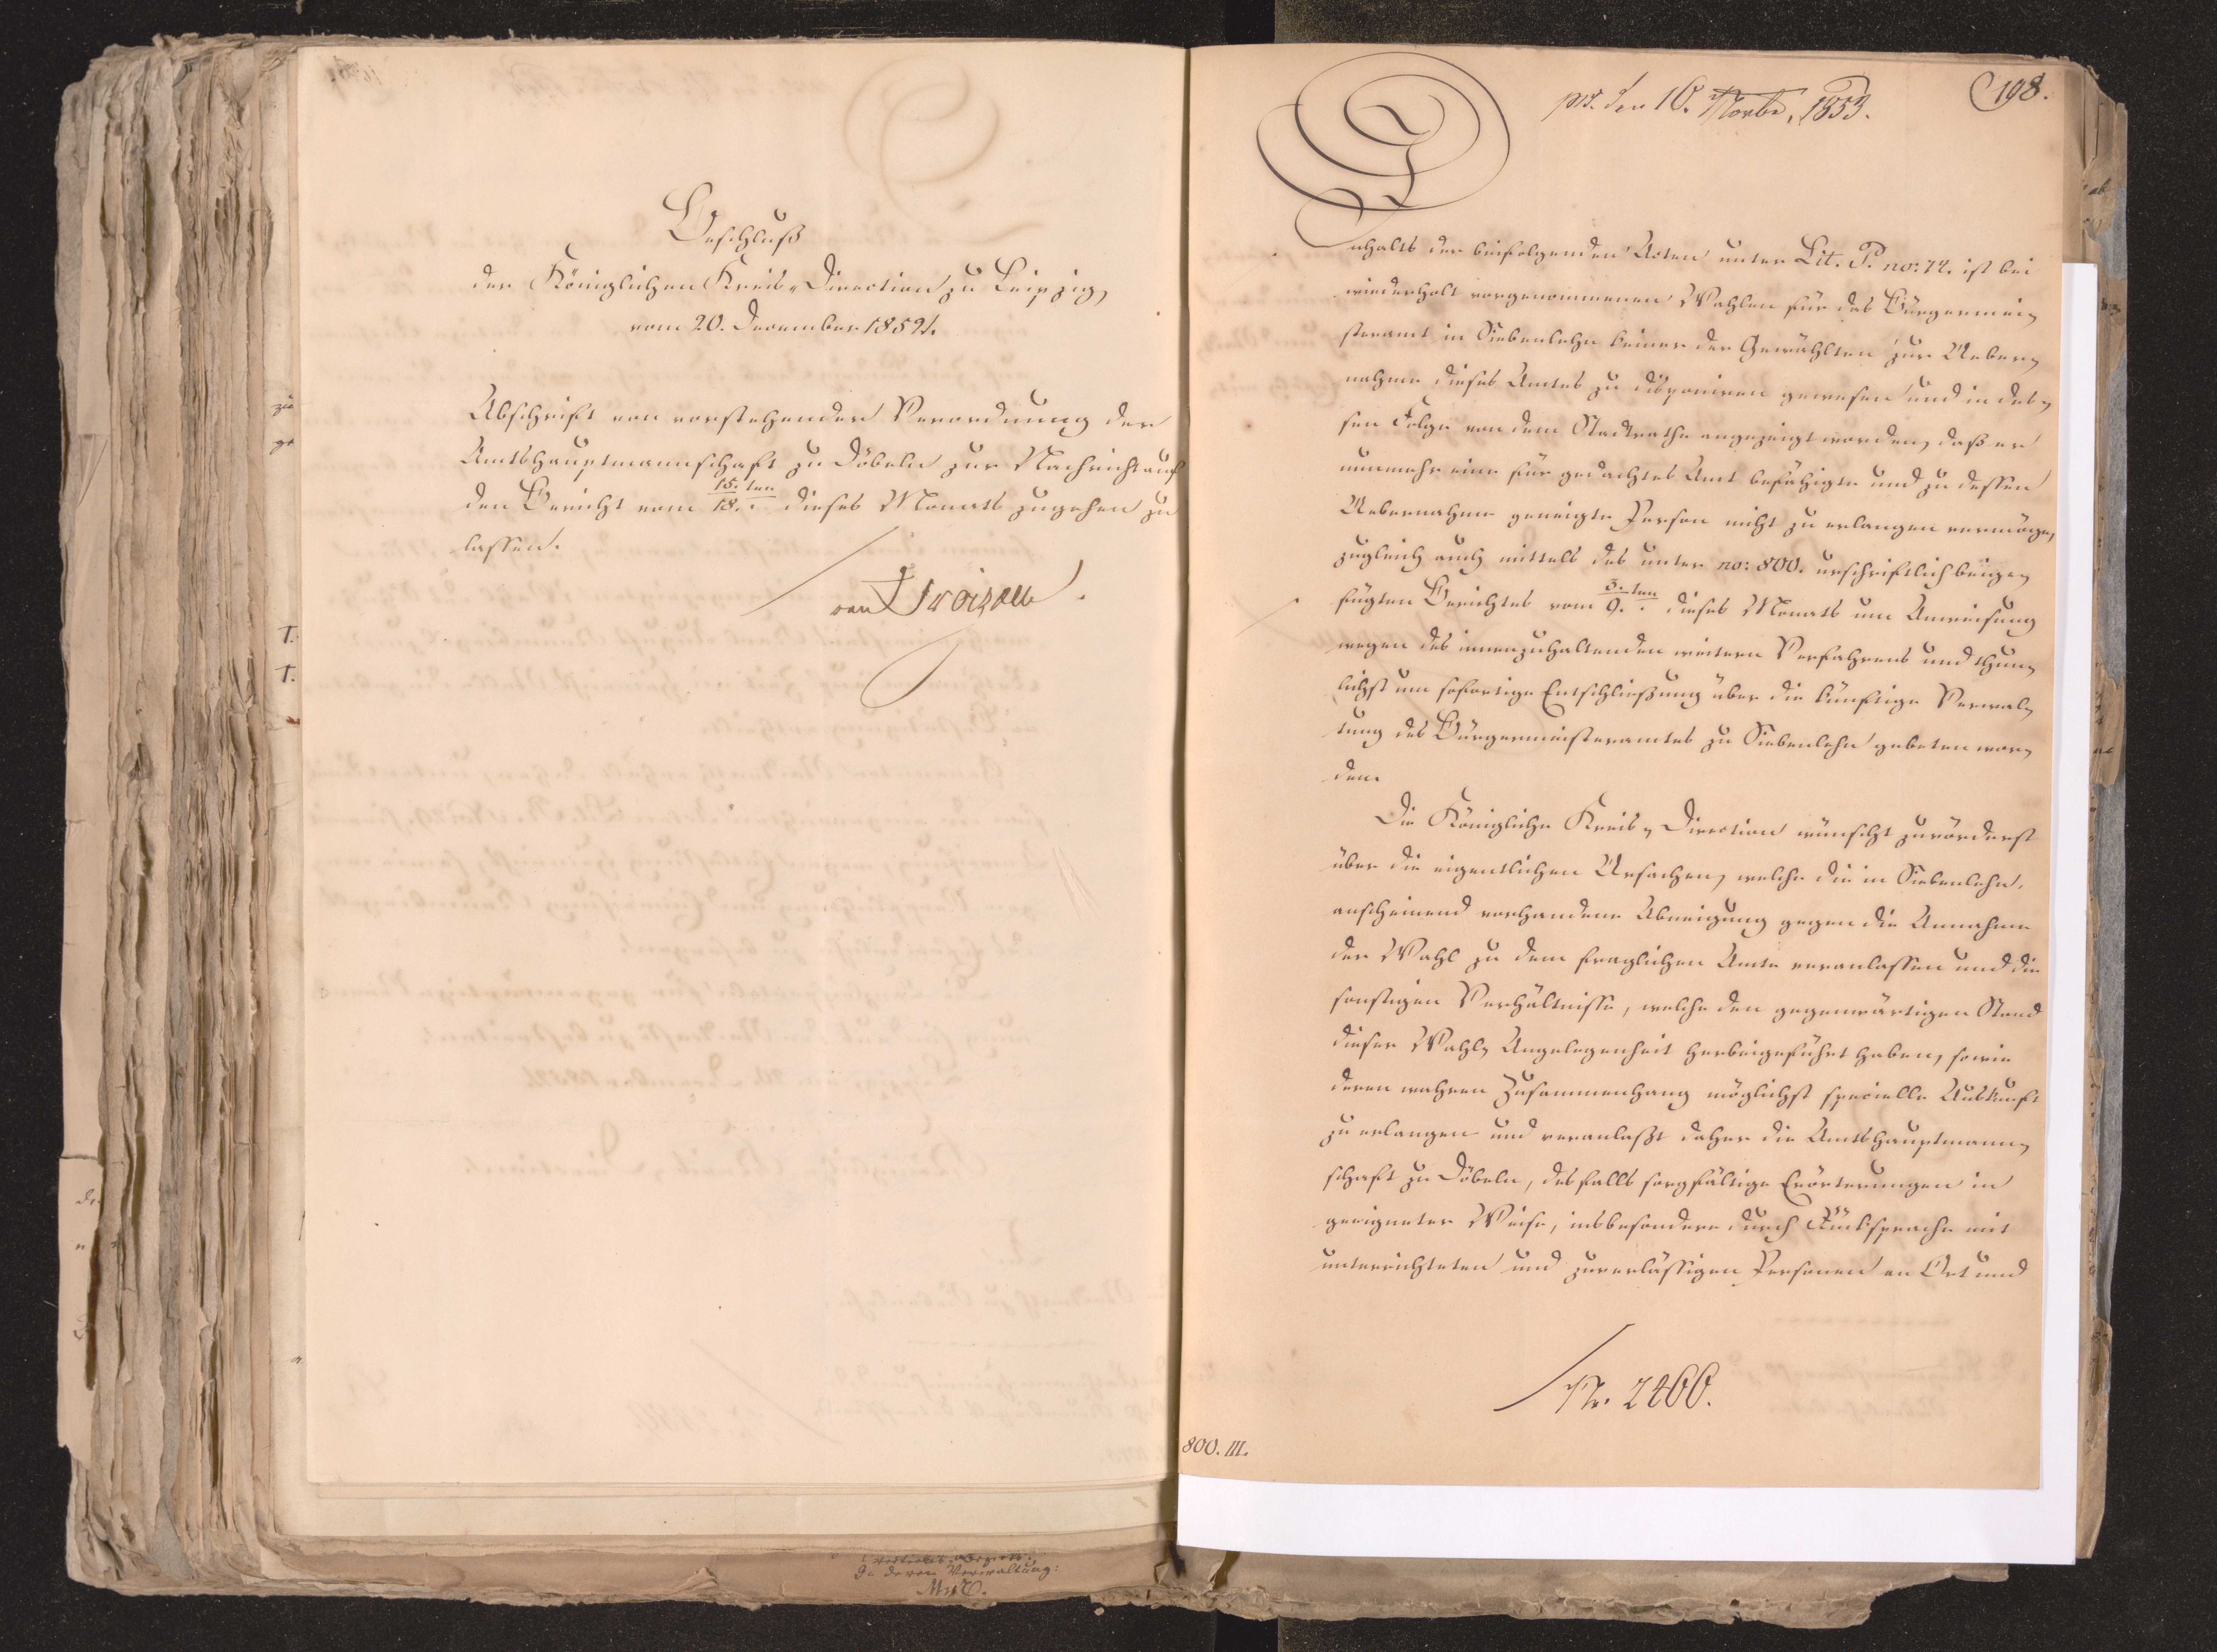 Beschluß
der Königlichen Kreis-Direction zu Leipzig,
vom 20. December 1852.
Abschrift von vorstehender Verordnung der
Amtshauptmannschaft zu Döbeln zur Nachricht auf
den Bericht vom 15./18. ten dieses Monats zugehen zu
lassen.
von Broizem.
prs. den 16. Novbr. 1853.
198.
Inhalts der beifolgenden Acten unter Lit. P. no: 74. ist bei
wiederholt vorgenommenen Wahlen für das Bürgermei-
steramt in Siebenlehn keiner der Gewählten zur Ueber-
nahme dieses Amtes zu disponiren gewesen und in des-
sen Folge von dem Stadtrathe angezeigt worden, daß er
nunmehr eine für gedachtes Amt befähigte und zu dessen
Uebernahme geneigte Person nicht zu erlangen vermöge,
zugleich auch mittels des unter no: 800. urschriftlich beige-
fügten Berichtes vom 3./9. ten dieses Monats um Anweisung
wegen des innenzuhaltenden weitern Verfahrens und thun-
lichst um sofortige Entschließung über die künftige Verwal-
tung des Bürgermeisteramtes zu Siebenlehn gebeten wor-
den.
Die Königliche Kreis-Direction wünscht zuvörderst
über die eigentlichen Ursachen, welche die in Siebenlehn,
anscheinend vorhandene Abneigung gegen die Annahme
der Wahl zu dem fraglichen Amte veranlassen und die
sonstigen Verhältnisse, welche den gegenwärtigen Stand
dieser Wahl-Angelegenheit herbeigeführt haben, sowie
deren wahren Zusammenhang möglichst specielle Auskunft
zu erlangen und veranlaßt daher die Amtshauptmann-
schaft zu Döbeln, desfalls sorgfältige Erörterungen in
geeigneter Weise, insbesondere durch Rücksprache mit
unterrichteten und zuverlässigen Personen an Ort und
Nr. 2466.
800. III.
In deren Verwaltung: